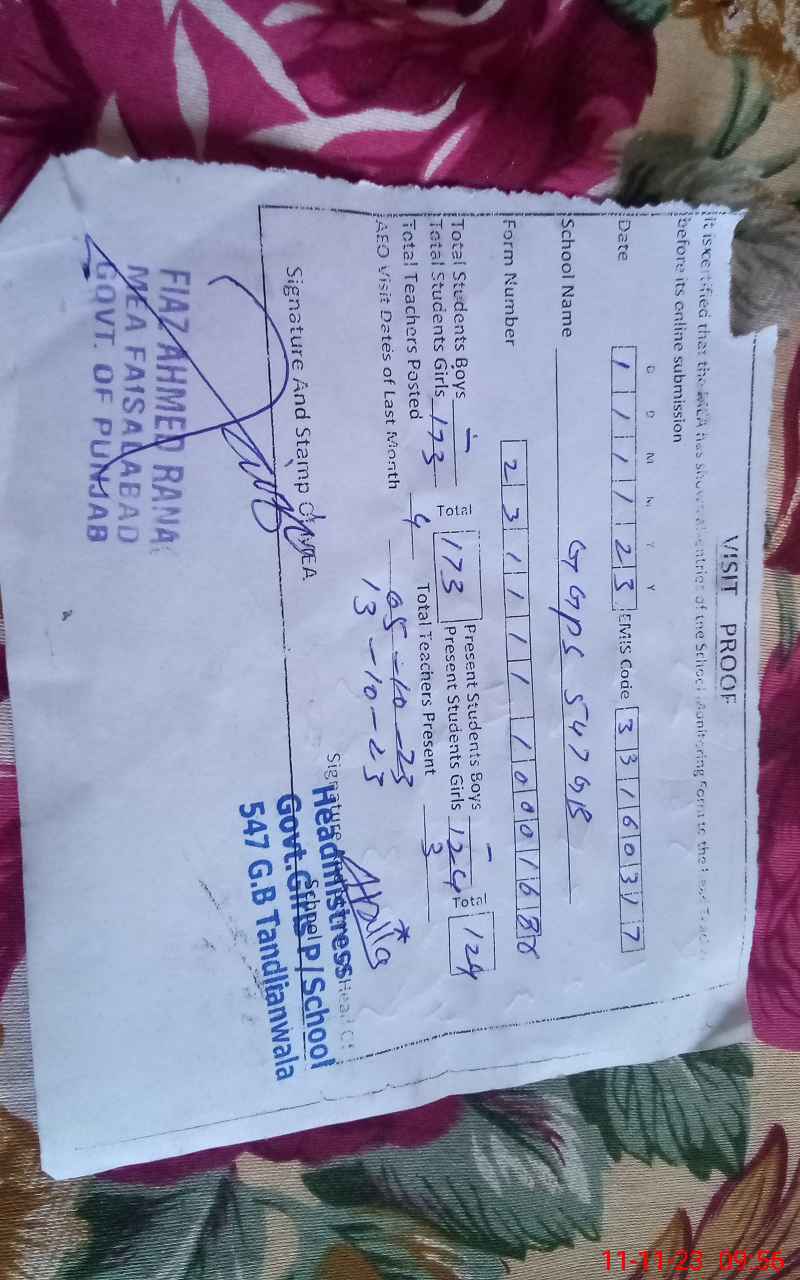 VISIT PROOF
It is certified that the MEA has shown all entries of the School Monitoring Form to the Head Teacher
before its online submission
D D M M Y Y
Date 1 1 1 1 2 3 EMIS Code 3 3 1 6 0 3 1 7
School Name GGPS 547 GB
Form Number 2 3 1 1 1 1 1 0 0 0 1 6 8 8
Total Students Boys - Present Students Boys -
Total Students Girls 173 Total 173 Present Students Girls 124 Total 124
Total Teachers Posted 4 Total Teachers Present 3
AEO Visit Dates of Last Month 05-10-23
13-10-23
Signature And Stamp Of MEA
Signature
School
Headmistress
Govt.Girls P/School
547 G.B Tandlianwala
FIAZ AHMED RANA
MEA FAISALABAD
GOVT. OF PUNJAB
11-11-23 09:56